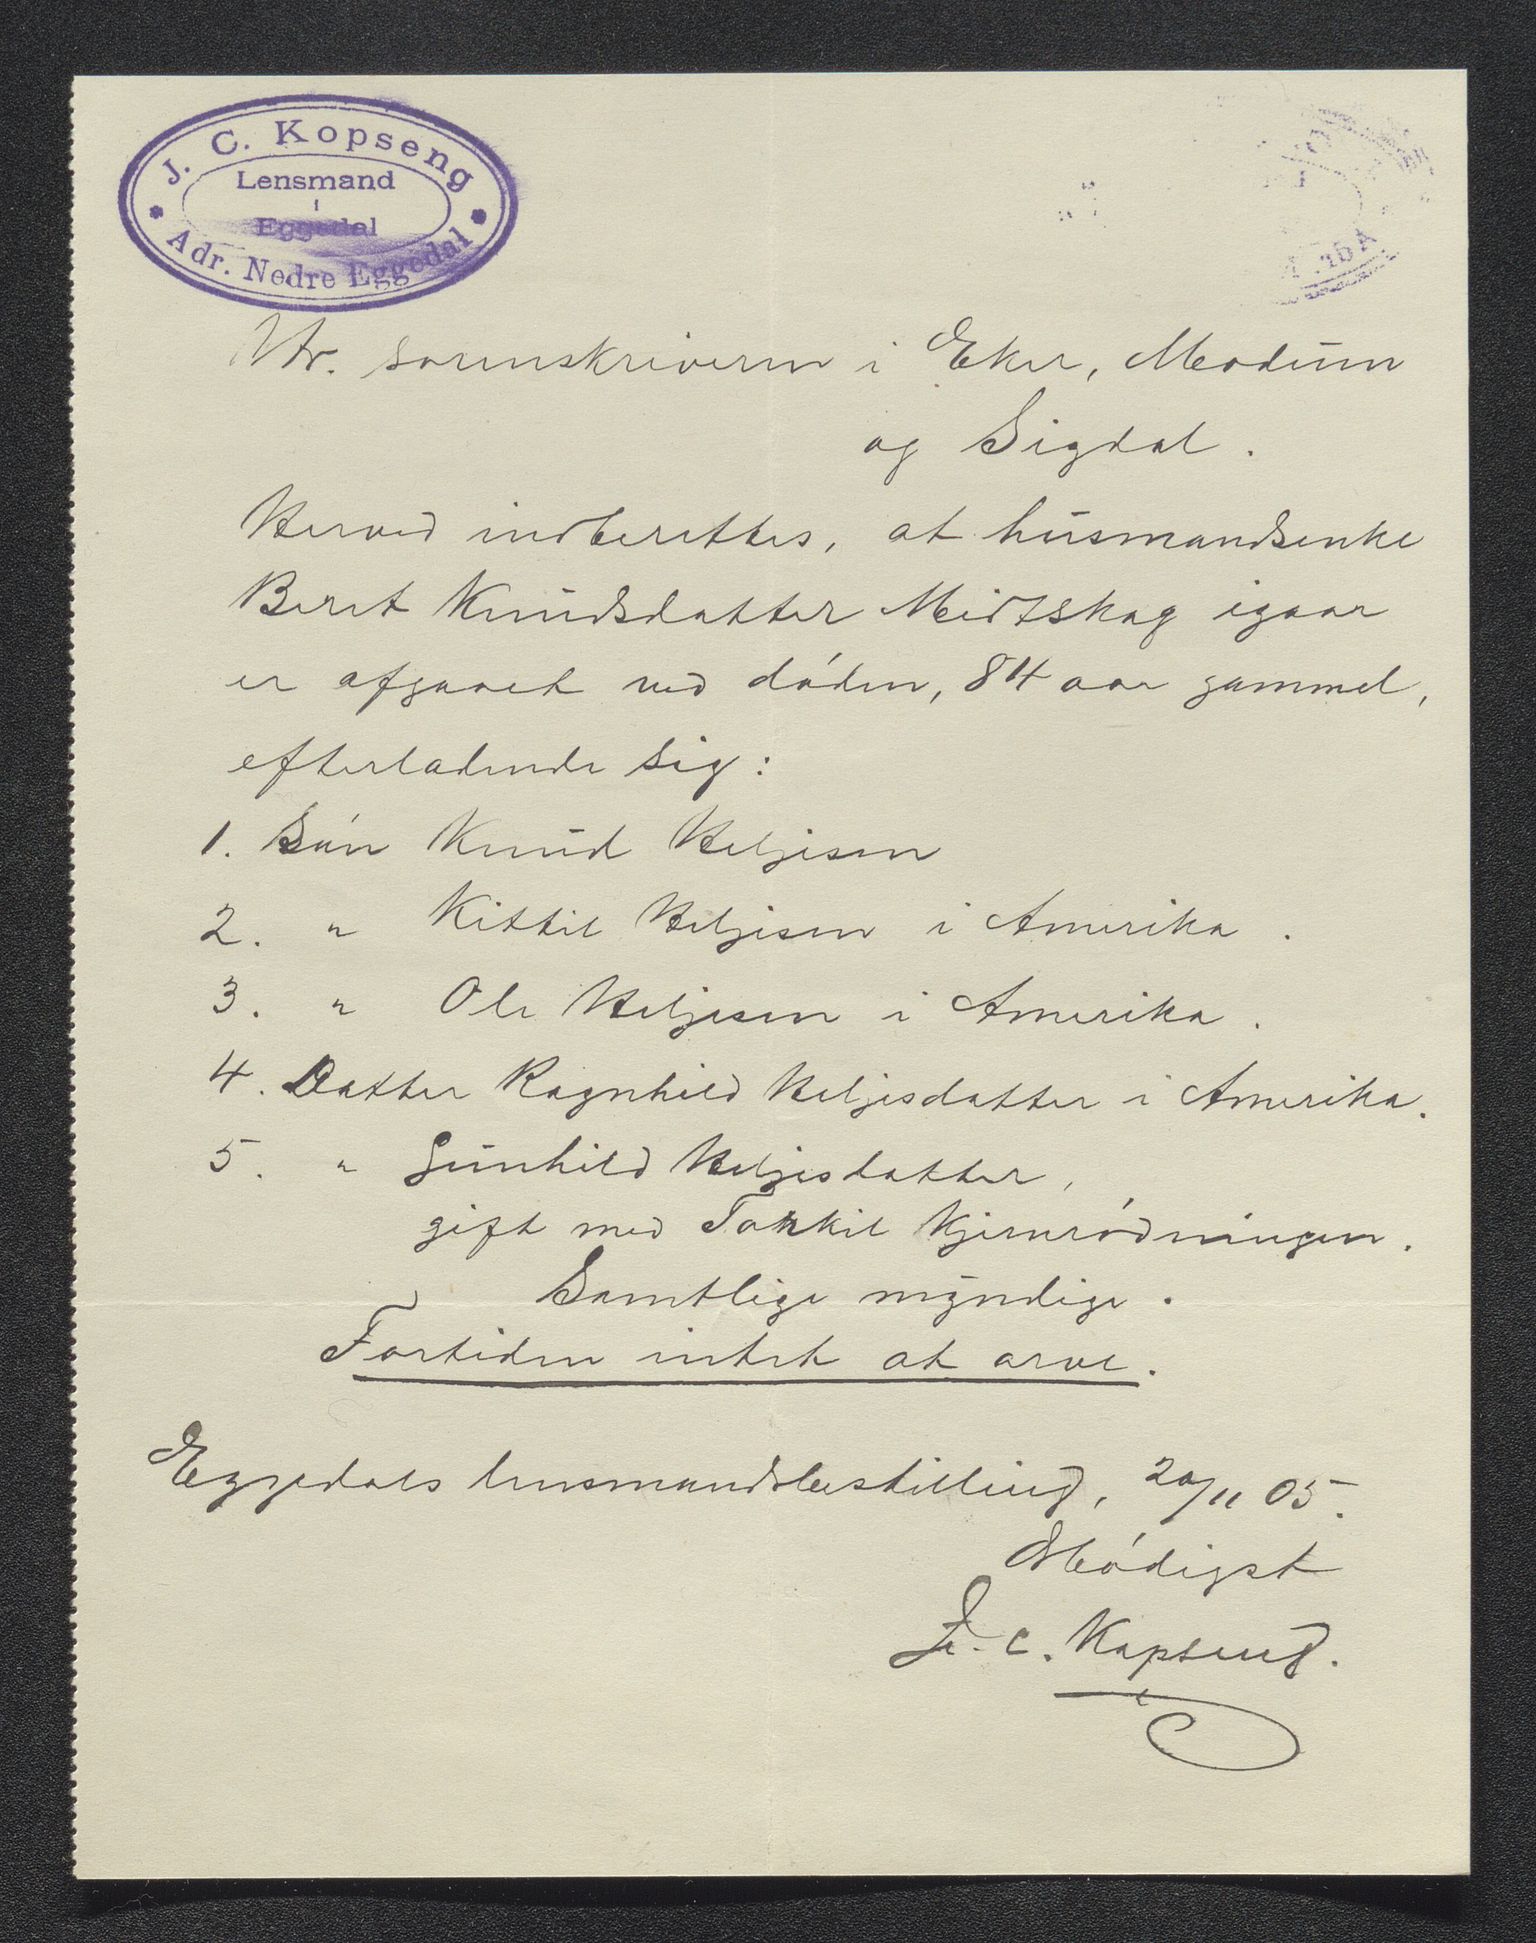 J. C. Kopseng
Lensmand
i
Eggedal
Adr. Nedre Eggedal
Hr. sorenskriveren i Eker, Modum
og Sigdal.
Herved indberettes, at husmandsenke
Beret Knudsdatter Midtskog igaar
er afgaaet ved døden, 84 aar gammel,
efterladende sig:
1. Søn Knud Helgesen
2. " Kittil Helgesen i Amerika.
3. " Ole Helgesen i Amerika.
4. Datter Ragnhild Helgesdatter i Amerika.
5. " Gunhild Helgesdatter,
gift med Torkil Kjernrødningen.
Samtlige myndige.
Fortiden intet at arve.
Eggedals lensmandsbestilling, 20/11 05.
Ærbødigst
J. C. Kopseng.